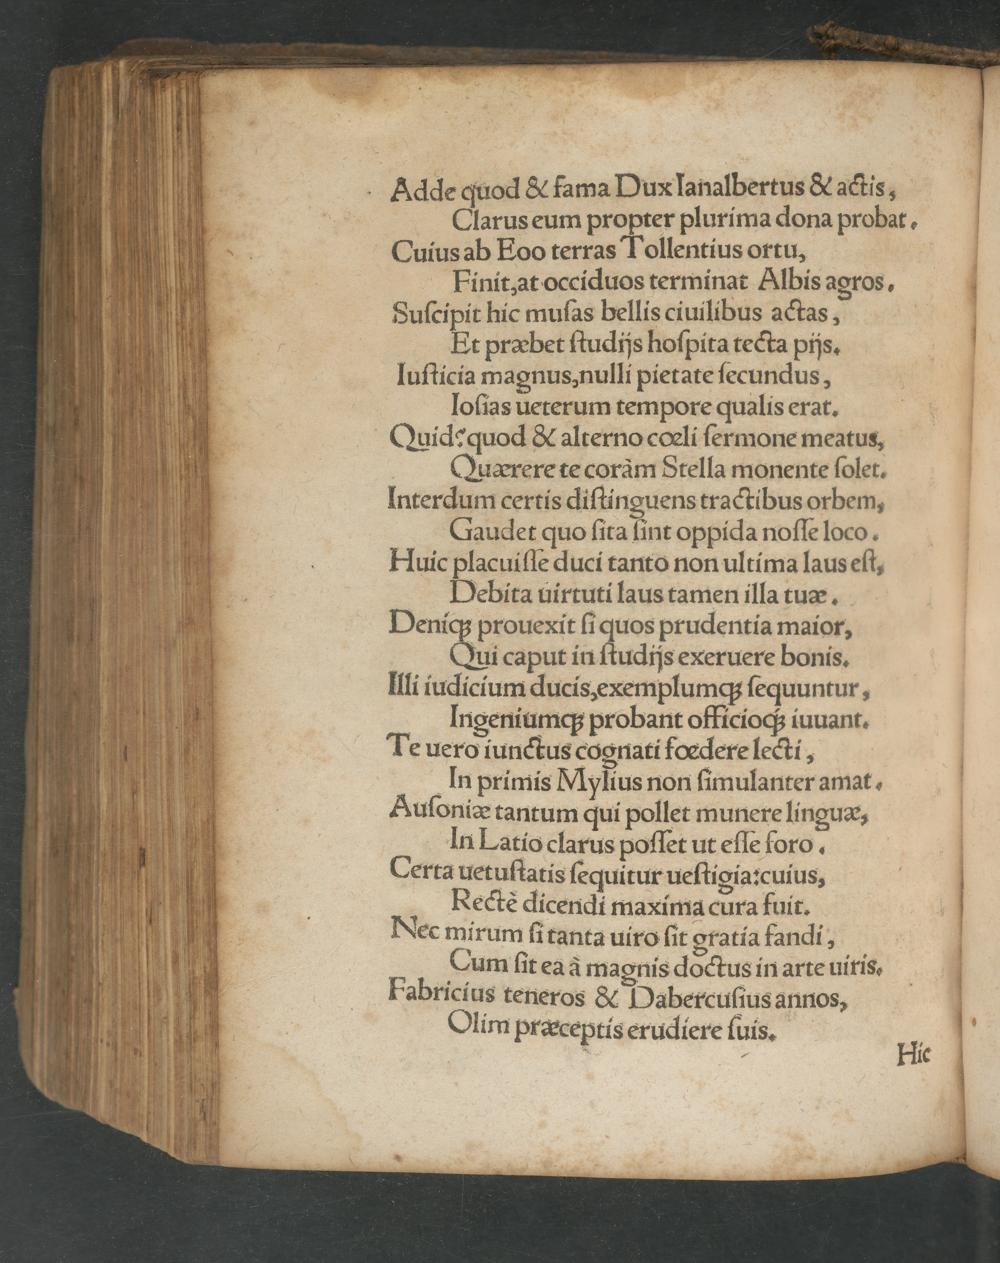 Adde quod & fama Dux Ianalbertus & actis,
Clarus eum propter plurima dona probat.
Cuius ab Eoo terras Tollentius ortu,
Finit, at occiduos terminat Albis agros.
Suſcipit hic muſas bellis ciuilibus actas,
Et præbet ſtudijs hoſpita tecta pijs.
Iuſticia magnus, nulli pietate ſecundus,
Ioſias ueterum tempore qualis erat.
Quid? quod & alterno cœli ſermone meatus,
Quærere te coràm Stella monente ſolet.
Interdum certis diſtinguens tractibus orbem,
Gaudet quo ſita ſint oppida noſſe loco.
Huic placuiſſe duci tanto non ultima laus eſt,
Debita uirtuti laus tamen illa tuæ.
Deniqꝫ prouexit ſi quos prudentia maior,
Qui caput in ſtudijs exeruere bonis.
Illi iudicium ducis, exemplumqꝫ ſequuntur,
Ingeniumqꝫ probant officioqꝫ iuuant.
Te uero iunctus cognati fœdere lecti,
In primis Mylius non ſimulanter amat.
Auſoniæ tantum qui pollet munere linguæ,
In Latio clarus poſſet ut eſſe foro.
Certa uetuſtatis ſequitur ueſtigia: cuius,
Rectè dicendi maxima cura fuit.
Nec mirum ſi tanta uiro ſit gratia fandi,
Cum ſit ea à magnis doctus in arte uiris.
Fabricius teneros & Dabercuſius annos,
Olim præceptis erudiere ſuis.
Hic